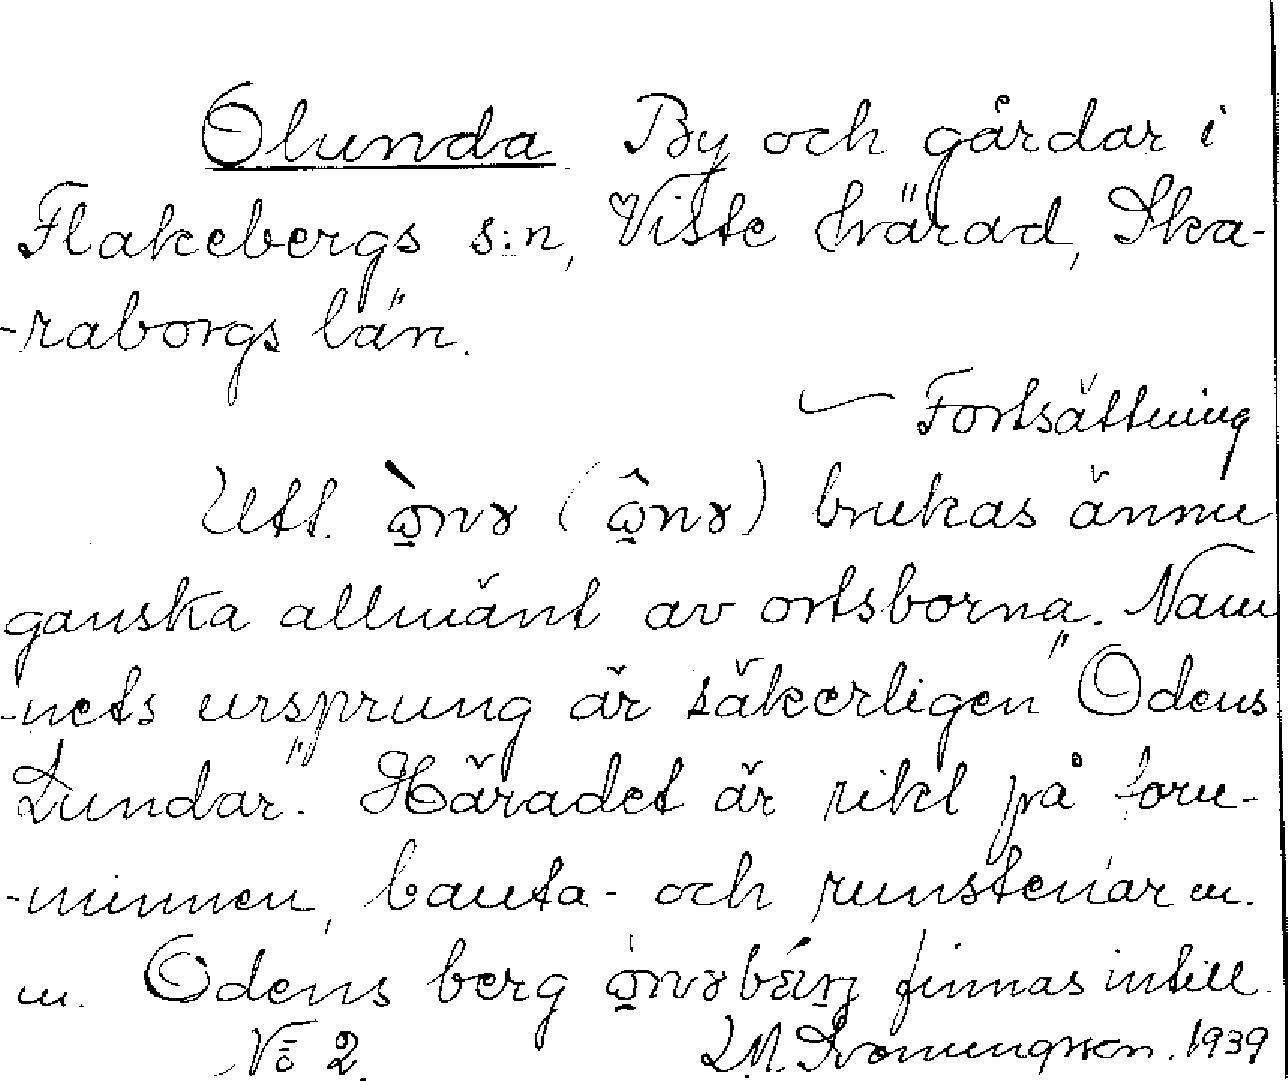 Olunda By och gårdar i
Flakebergs s:n, Viste härad, Ska-
-raborgs län.
Fortsättning
Utt. ( ) brukas ännu
ganska allmänt av ortsborna. Nam
-nets ursprung är säkerligen "Odens
Lundar". Häradet är rikt på forn-
-minnen, bauta- och runstenar m.
m. Odens berg finnas intill.
No 2.
1939